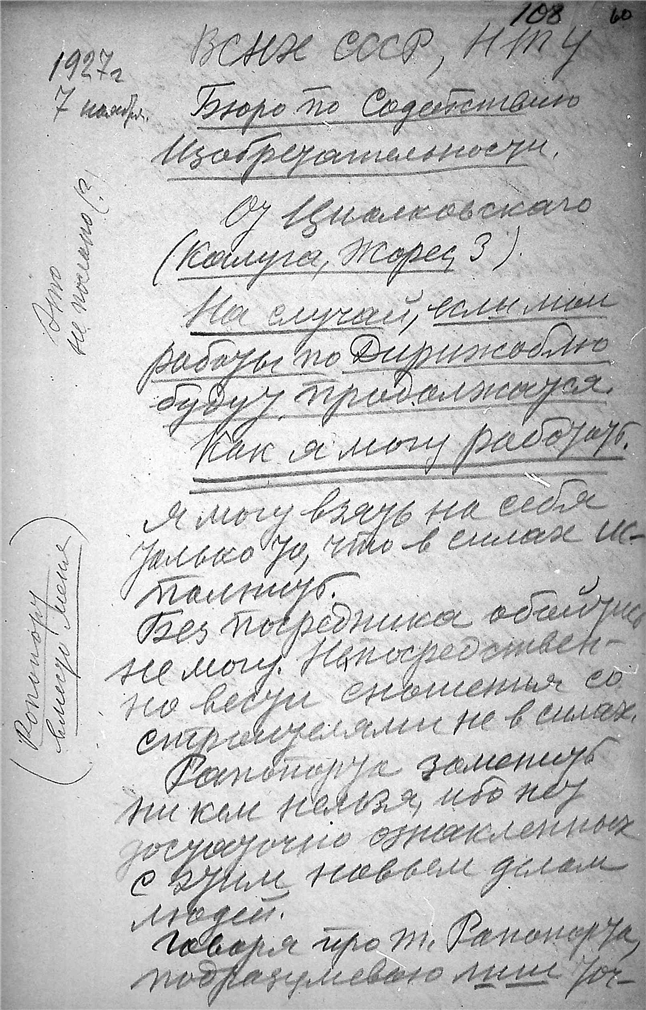 108 60
1927 г
7 ноября.
ВСНХ СССР, НТУ
Бюро по Содействию
Изобретательности.
От Циолковскаго
(Калуга, Жорес, 3).
На случай, если мои
работы по Дирижаблю
будут продолжатся.
Как я могу работать.
Я могу взять на себя
только то, что в силах ис-
полнить.
Без посредника обойтись
не могу. Непосредствен-
но вести сношения со
строителями не в силах.
Рапопорта заменить
ни кем нельзя, ибо нет
достаточно
с этим новым делом
людей.
Говоря про т. Рапопорта,
подразумеваю или точ-
Это
не послано (?)
(Рапопорт
вместо меня)